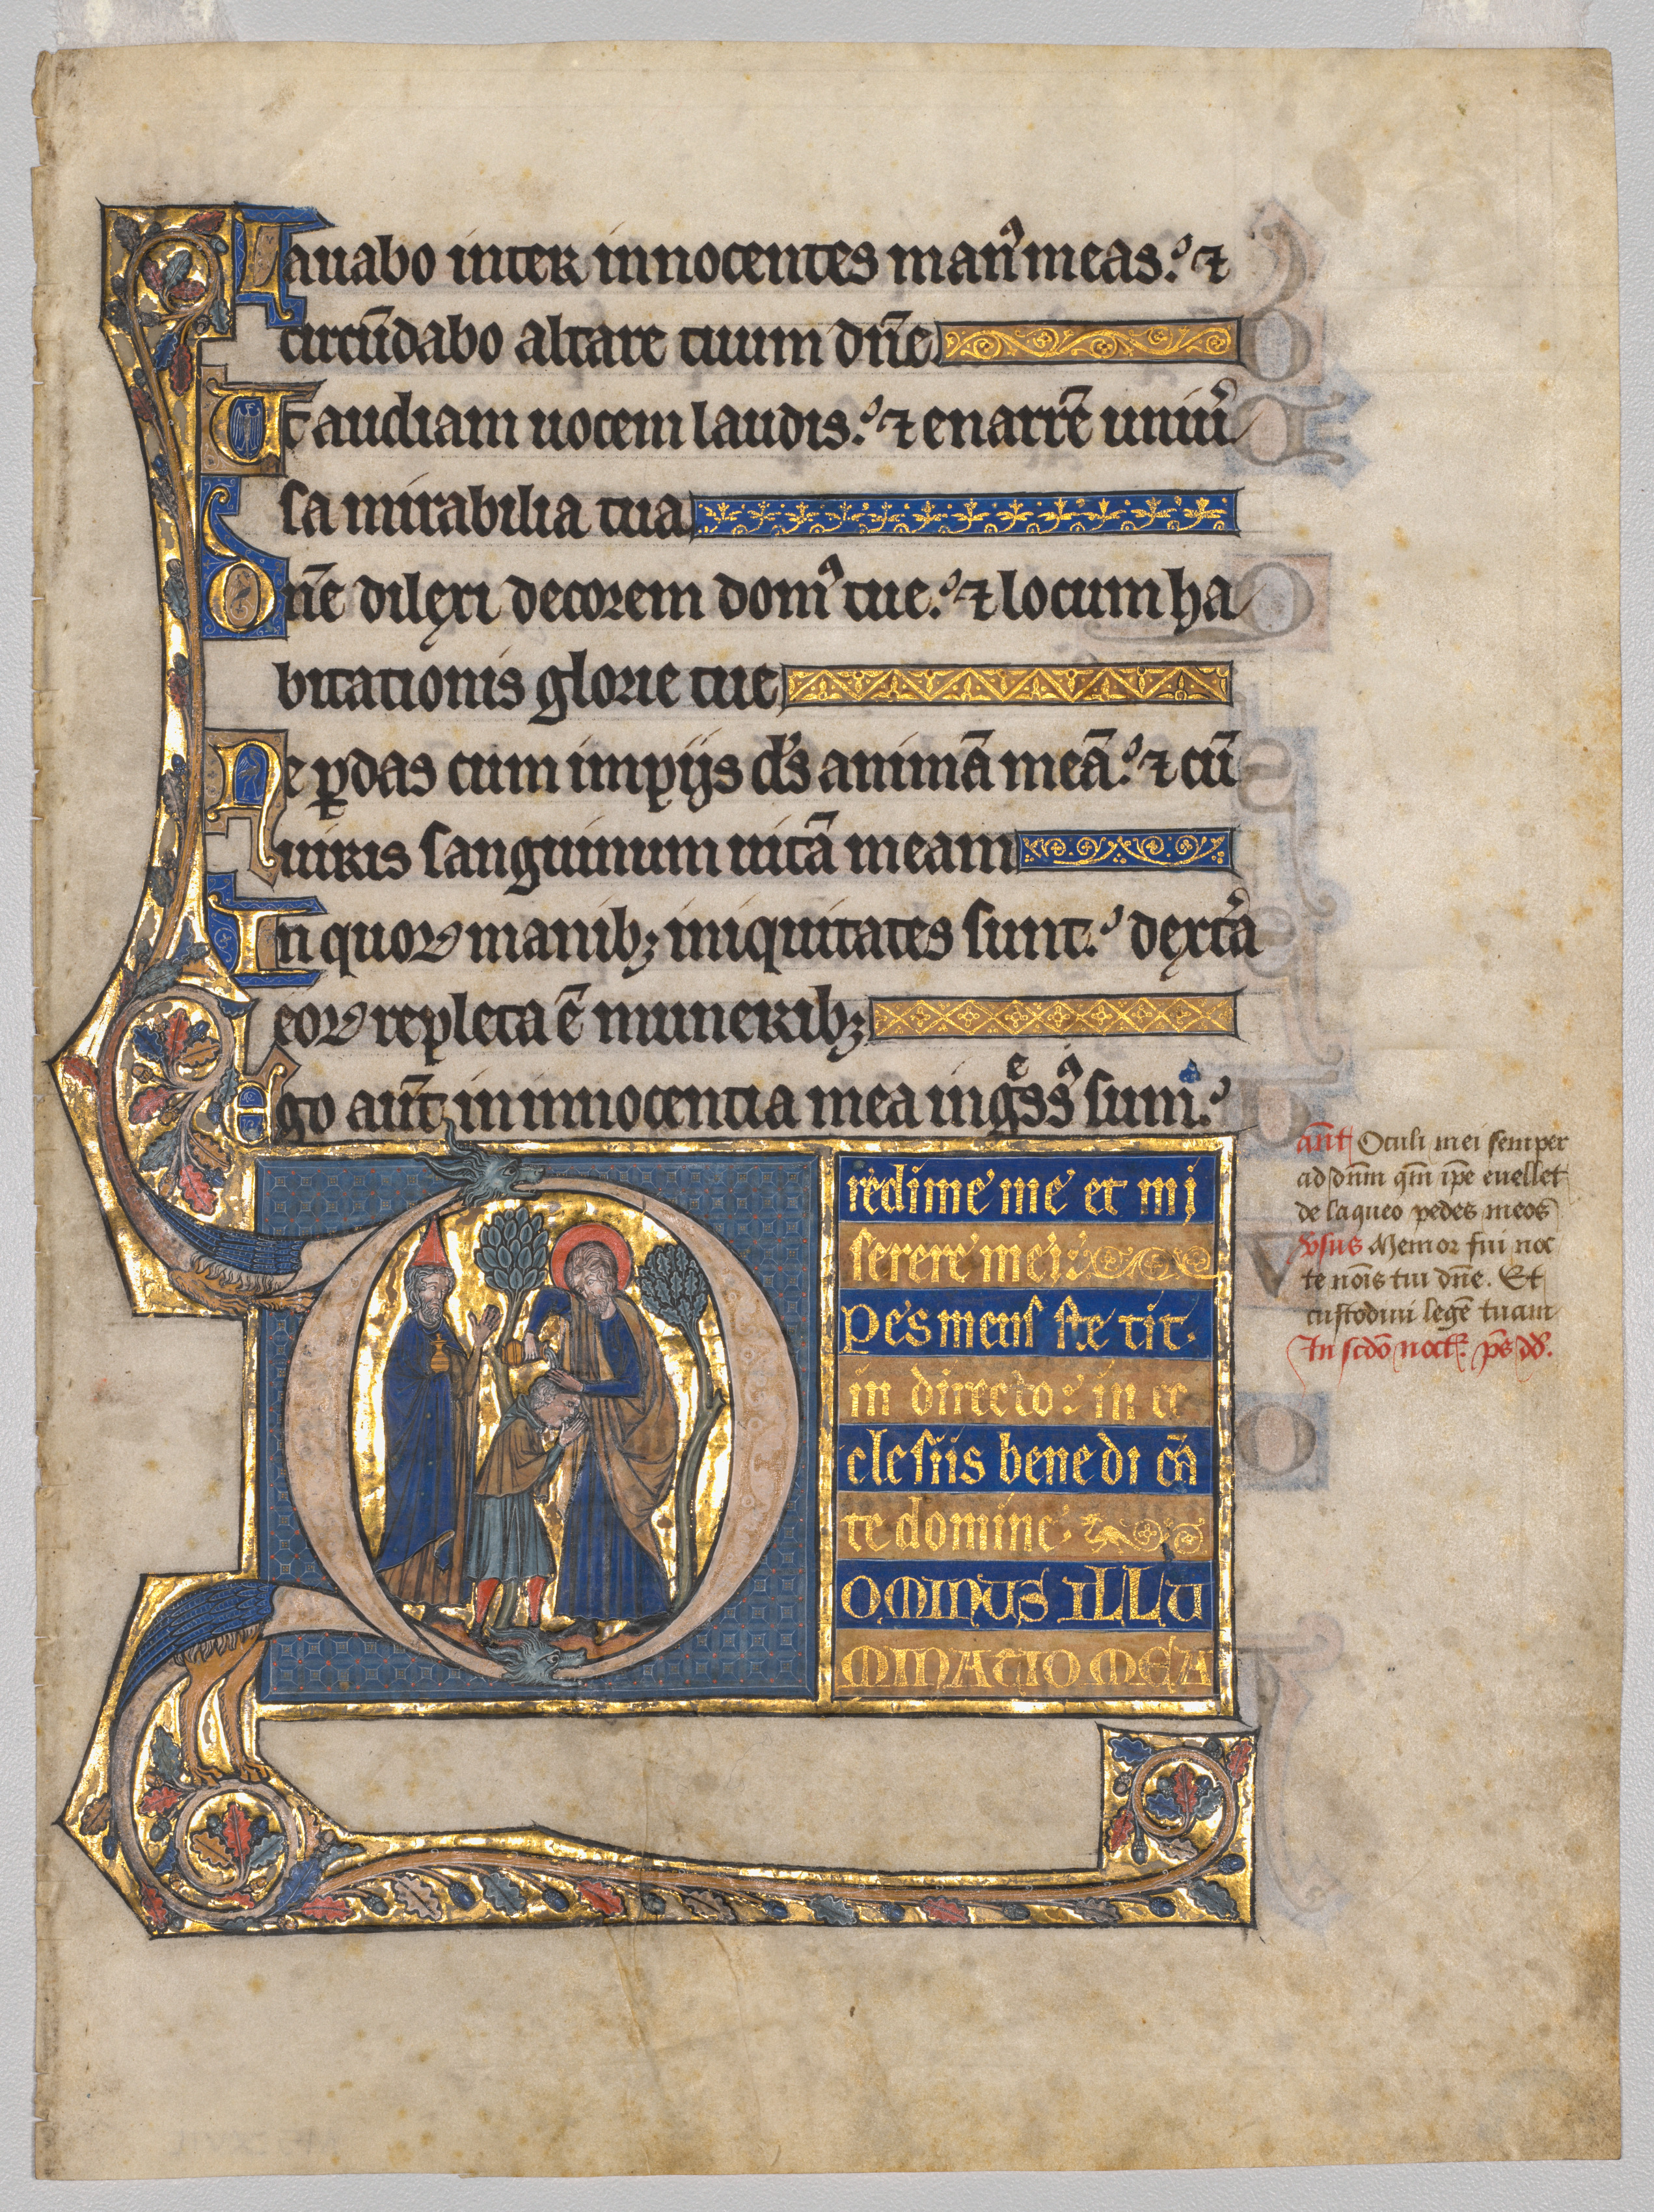 Lauabo inter innocentes man᾽ meas. ⁊
circūdabo altare tuum dn̄e
Ut audiam uocem laudis. ⁊ enarrē uniu᾽
sa mirabilia tua
Dn̄e dilexi decorem dom᾽ tue. ⁊ locum ha
bitationis glorie tue
Ne ꝑdas cum impijs d᾽s animā meā. ⁊ cū
uiris sanguinum uitā meam
In quoꝝ manibꝫ iniquitates sunt. dext᾽a
eoꝝ repleta ē muneribꝫ
Ego aut̄ in innocentia mea ingͤss᾽ sum.
redime me et mi
serere mei.
Pes meus ste tit.
in directo. in ec
clesiis benedi cā
te domine.
DOMINUS ILLU
MINATIO MEA
ant̄ Oculi mei semper
ad dn̄m qm̄ ip̄e euellet
de laqueo pedes meos
v̄sus Memor fui noc
te nōis tui dn̄e. Et
custodiui legē tuam
In scdō noct. ps̄ dd̄.